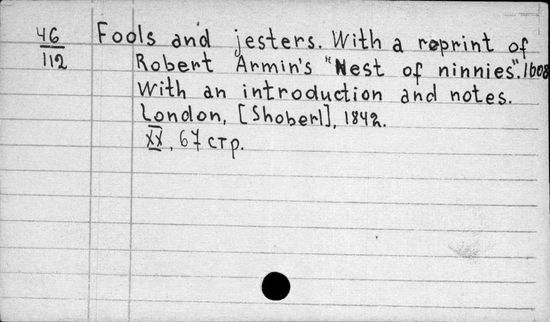 46 Fools and jesters. With a reprint of
112 Robert Armin's "Nest of ninnies". 1608
With an introduction and notes.
London, [Shoberl], 1842.
XX, 67 стр.